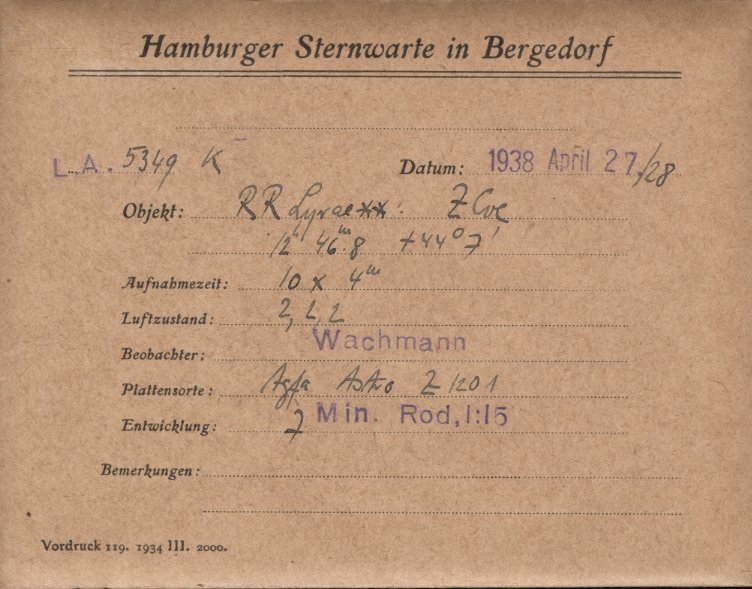 Hamburger Sternwarte in Bergedorf
L.A. 5349 K Datum: 1938 April 27./28
Objekt: RR Lyrae ** : Z CVe
12 46.m8 +44° 7'
Aufnahmezeit: 10 x 4m
Luftzustand: 2, 2, 2
Beobachter: Wachmann
Plattensorte: Agfa Astro Z 1201
Entwicklung: 7 Min. Rod, 1:15
Bemerkungen:
Vordruck 119. 1934 III. 2000.